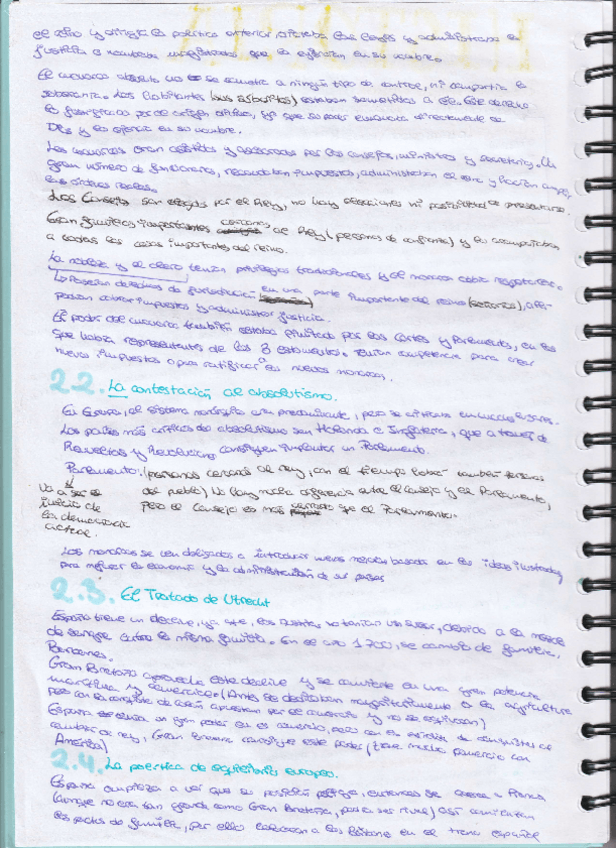 el ejército y dirigía la política exterior, dictaba las leyes y administraba la
justicia o nombraba magistrados que la ejercían en su nombre.
El monarca absoluto no se sometía a ningún tipo de control, ni compartía la
soberanía. Los habitantes (sus súbditos) estaban sometidos a él. Este derecho
lo justificaba por origen divino, ya que su poder emanaba directamente de
Dios y lo ejercía en su nombre.
Los monarcas eran asistidos y asesorados por los consejos, ministros y secretarios. Un
gran número de funcionarios, recaudaban impuestos, administraban el reino y hacían cumplir
las órdenes reales.
Los Consejos son elegidos por el Rey, no hay elecciones ni posibilidad de presentarse.
Gran familias importantes cercanos al Rey (personas de confianza) y lo acompañaban
a todas las cosas importantes del reino.
La nobleza y el clero tenían privilegios tradicionales y el monarca debía respetarlos.
Poseían derechos de jurisdicción en una parte importante del reino (señoríos), allí
podían cobrar impuestos y administrar justicia.
El poder del monarca también estaba limitado por las Cortes y Parlamento, en los
que había representantes de los 3 estamentos. Tenían competencia para crear
nuevos impuestos o para ratificar a los nuevos monarcas.
2.2. La contestación al absolutismo.
En Europa, el sistema monárquico era predominante, pero se critica en varios lugares.
Los países más críticos del absolutismo son Holanda e Inglaterra, que a través de
Revueltas y Revoluciones consiguen implantar un Parlamento.
Parlamento: (personas cercanas al rey, con el tiempo habrá también personas
del pueblo) No hay mucha diferencia entre el Consejo y el Parlamento,
pero el Consejo es más cercano que el Parlamento.
Va a ser el
inicio de
la democracia
actual.
Los monarcas se ven obligados a introducir nuevas mejoras basadas en las ideas ilustradas
para mejorar la economía y la administración de sus países
2.3. El Tratado de Utrecht
España tiene un declive, ya que, los Austrias no tenían un sucesor, debido a la mezcla
de sangre entre la misma familia. En el año 1700, se cambia de familia,
Borbones.
Gran Bretaña aprovecha este declive y se convierte en una gran potencia
marítima y comercial. (Antes se dedicaban mayoritariamente a la agricultura
pero con la conquista de Colón apuestan por el comercio y no se equivocan)
España tenía un gran poder en el comercio, pero con
cambio de rey, Gran Bretaña consigue este poder (tiene mucho comercio con
América)
2.4. La política de equilibrio europeo.
España empieza a ver que su posición peligra, entonces se acerca a Francia
(aunque no era tan grande como Gran Bretaña, podía ser rival) Así comienzan
los pactos de familia, por ello colocaron a los Borbones en el trono español